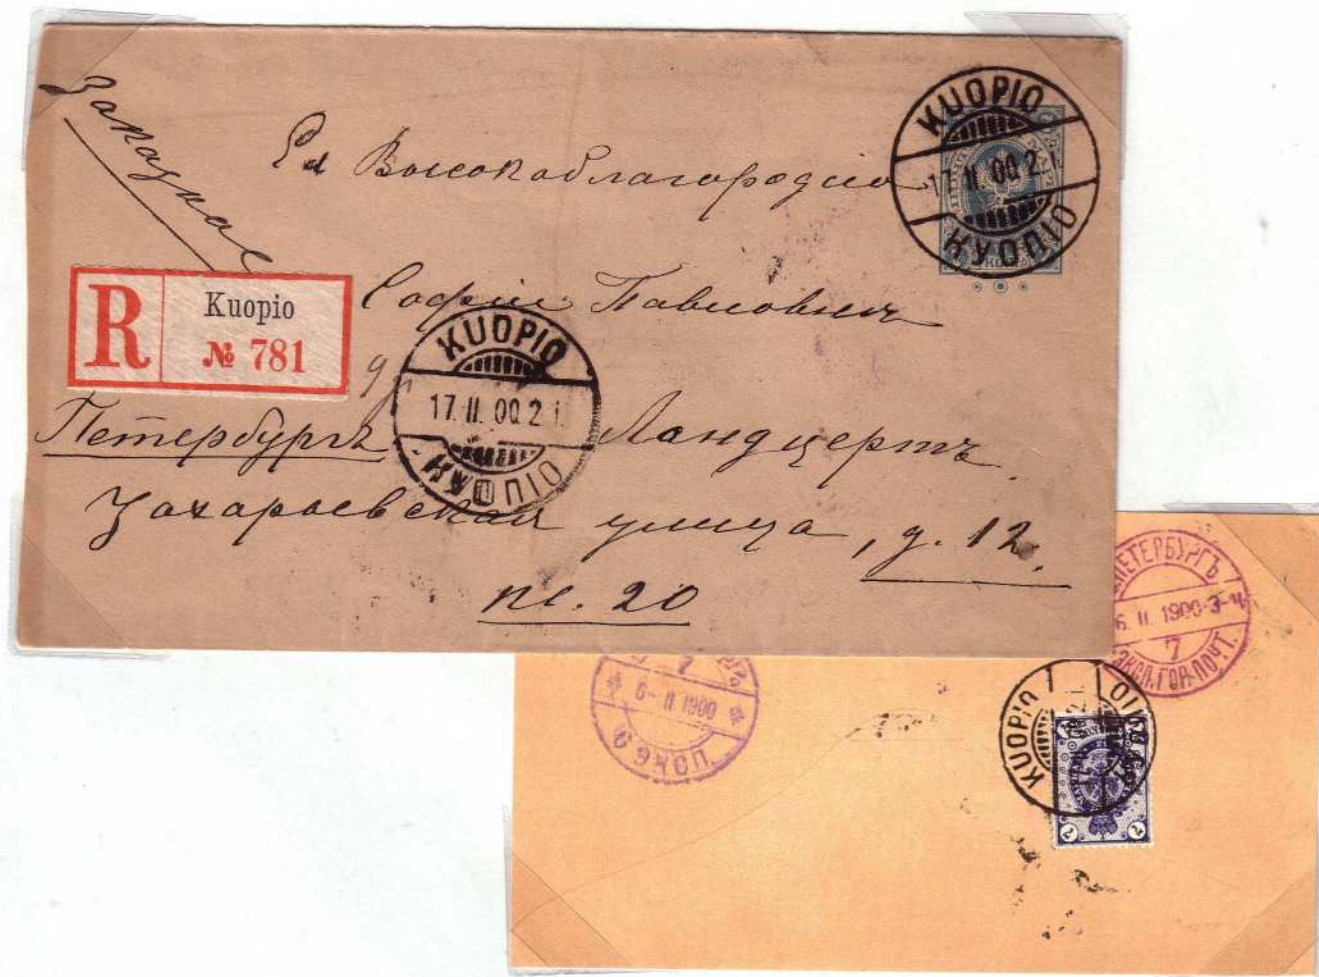 Заказное
Ея Высокоблагородію
KUOPIO
17. II. 00. 2 i.
КУОПІО
Софіи Павловнѣ
R Kuopio
№ 781
KUOPIO
17. II. 00. 2 i.
КУОПІО
Петербургъ Ландцертъ
Захарьевская улица, д. 12.
кв. 20
ПЕТЕРБУРГЪ
6. II. 1900 3-ч
7
ЭКСП. ГОР. ПОЧТ.
7
6-II 1900
6 ЭКСП.
KUOPIO
2 2